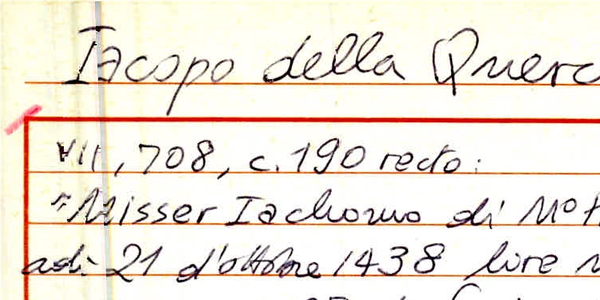 Iacopo della Querc
VII, 708, c. 190 recto:
"Misser Iachomo di M°
adi 21 d'ottobre 1438 lire